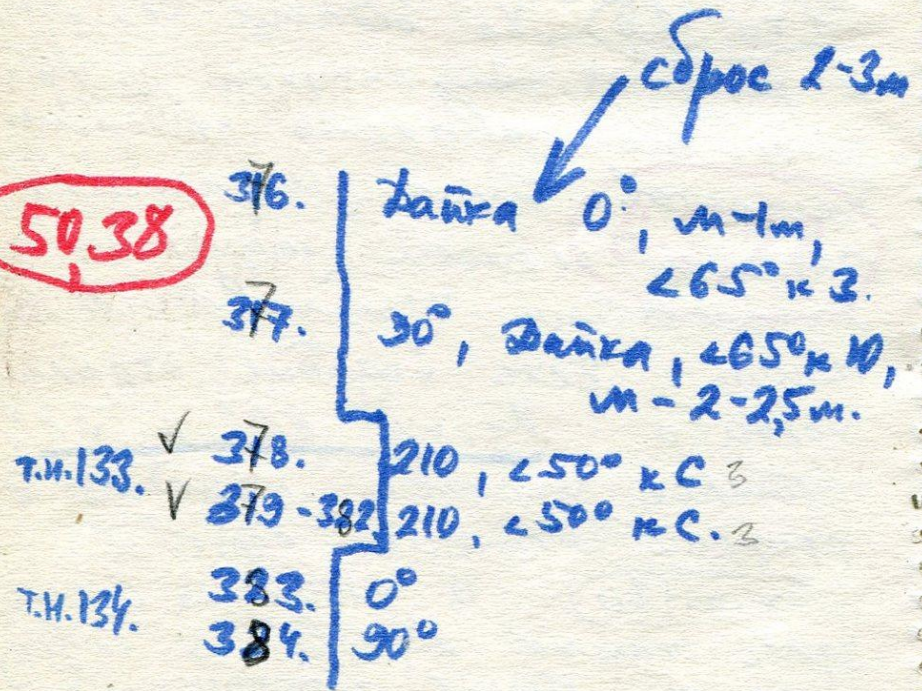 сброс 2-3м
50,38
376. Дайка 0°, м-1м,
<65° к З.
377. 90°, Дайка, <65° к Ю,
м - 2-2,5м.
т.н.133. √ 378. 210, <50° к С З
√ 379-382 210, <50° к С. З
т.н.134. 383. 0°
384. 90°